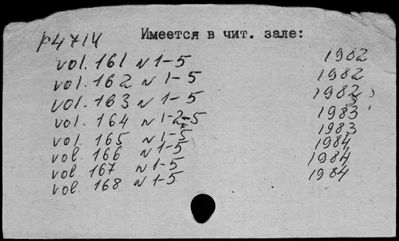 p4714 Имеется в чит. зале:
vol. 161 N 1-5 1982
vol. 162 N 1-5 1982
vol. 163 N 1-5 1982
vol. 164 N 1-2-5 1983
vol. 165 N 1-5 1983
vol. 166 N 1-5 1984
vol. 167 N 1-5 1984
vol. 168 N 1-5 1984